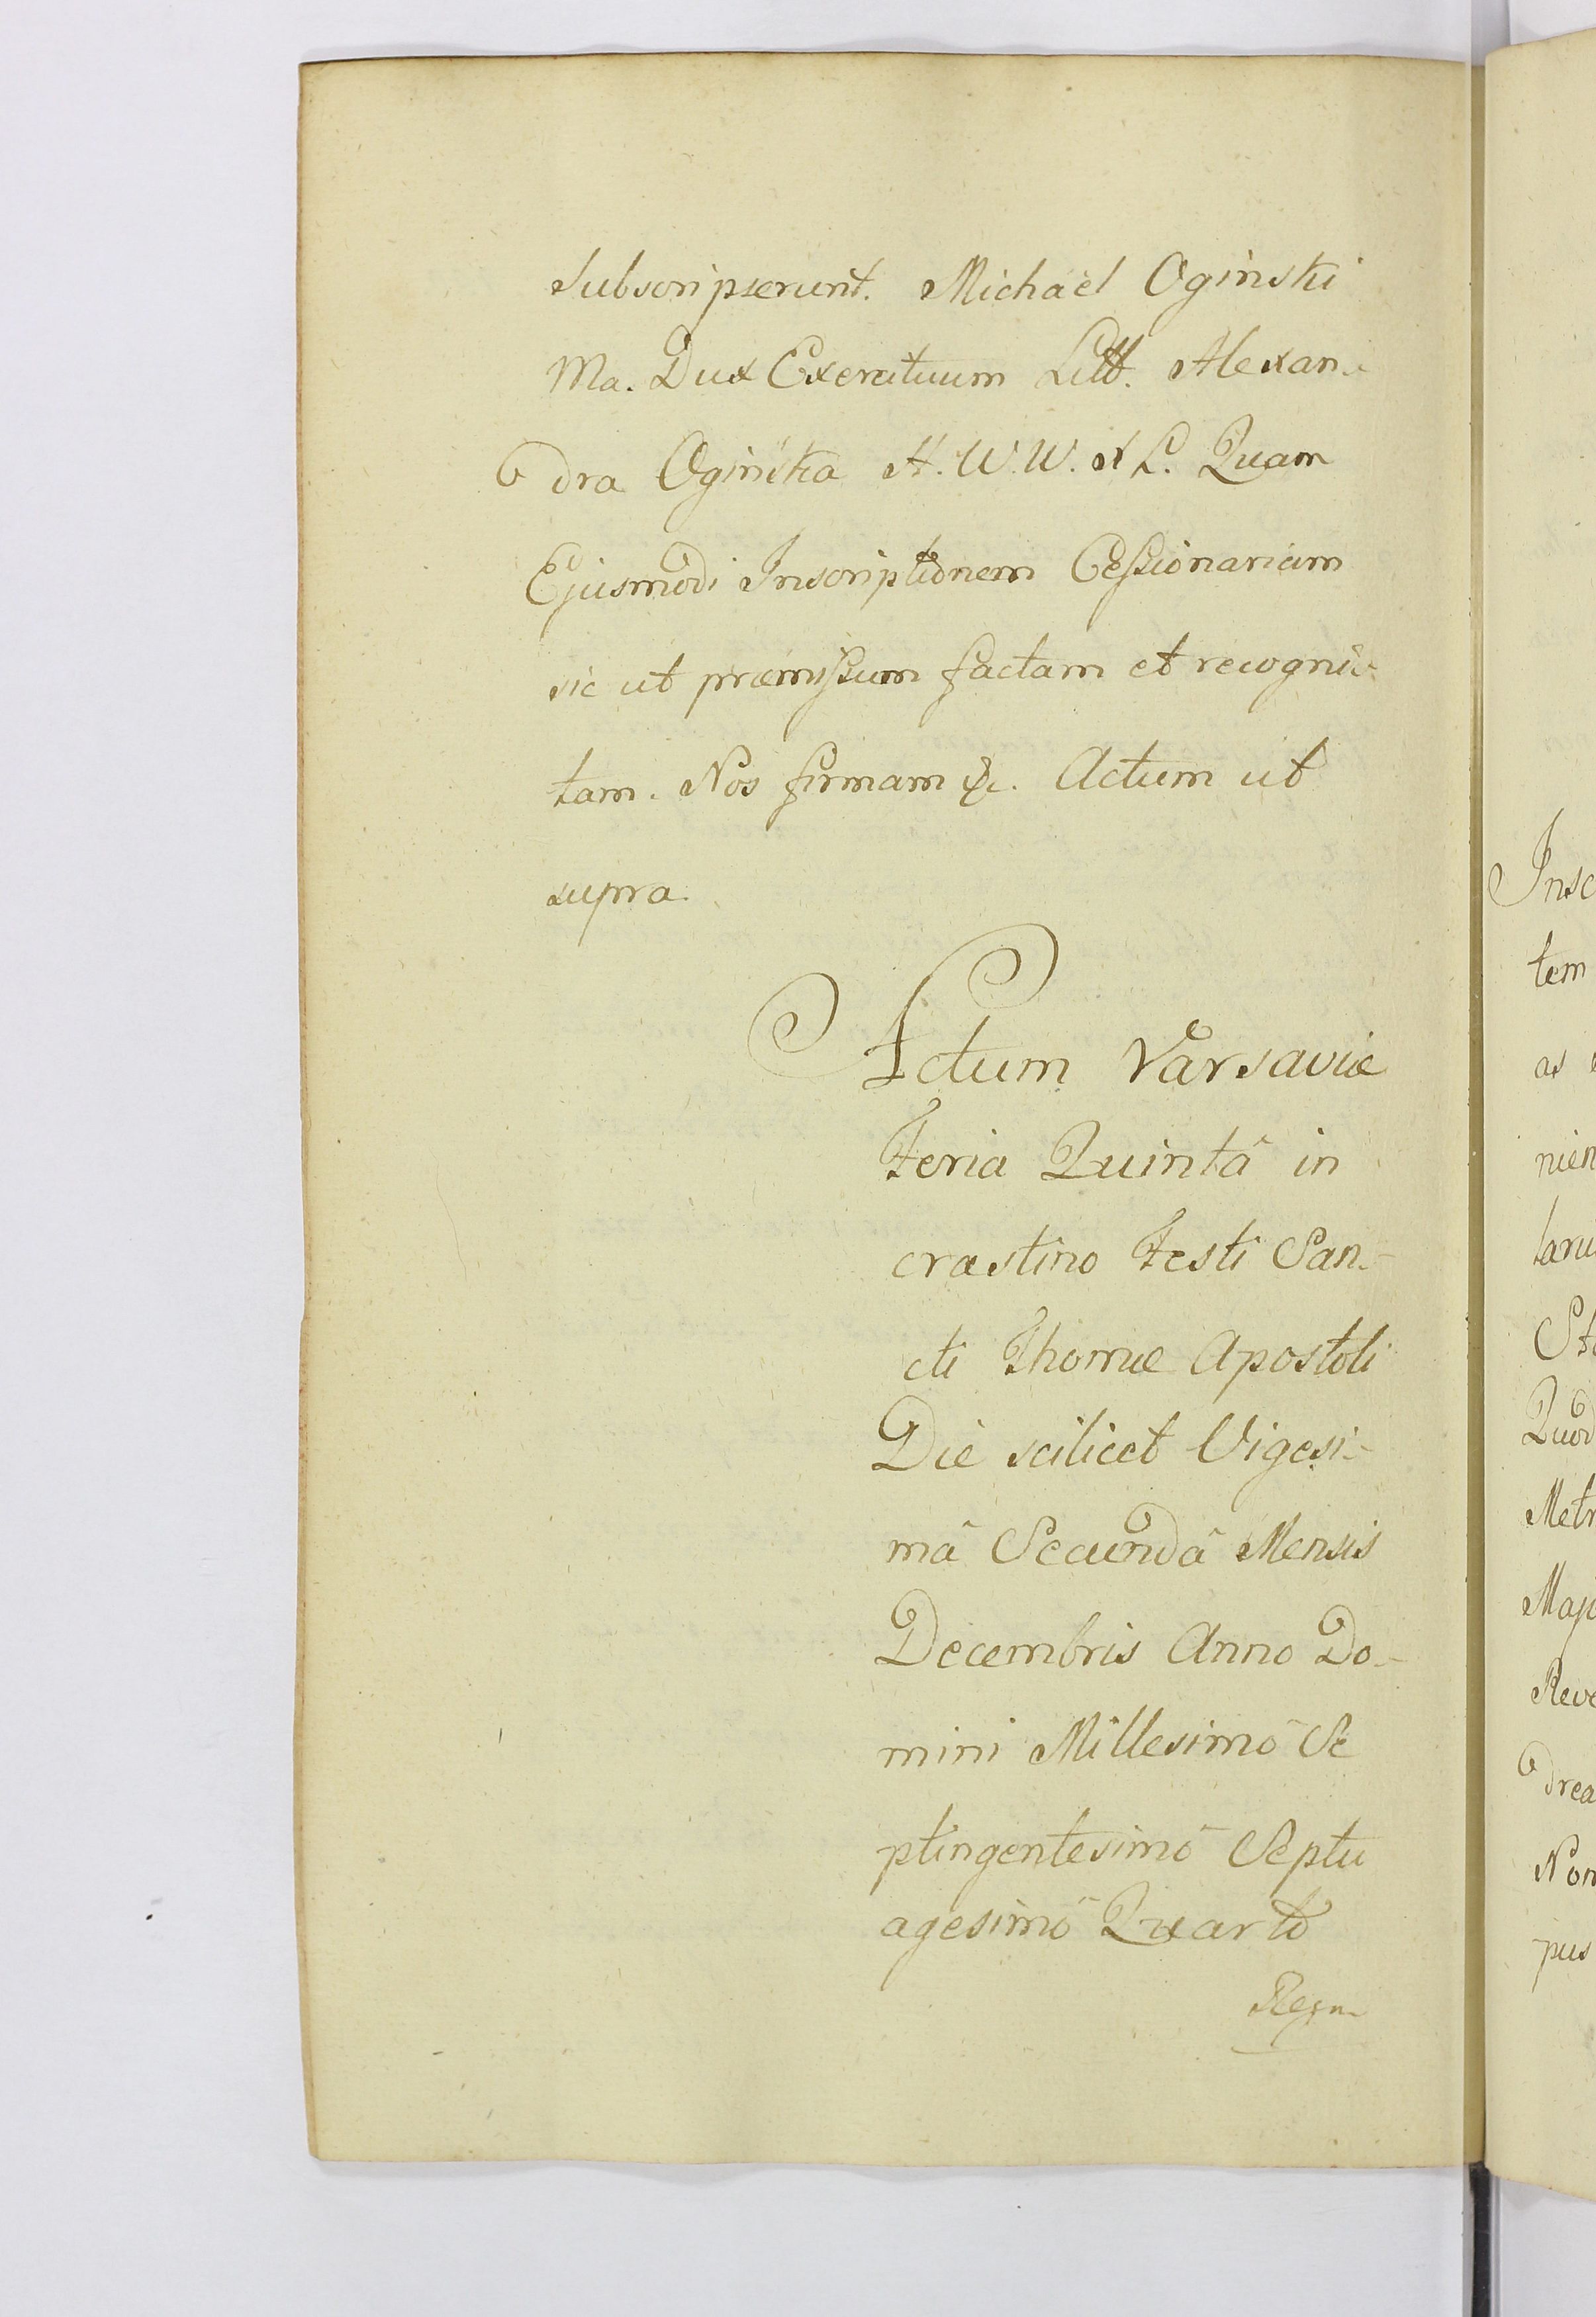 subscripserunt. Michaël Oginski
Ma. Dux Exercituum Litt. Alexan-
dra Oginska H. W. W. X L. Quam
Ejusmodi Inscriptionem Cessionariam
sic ut præmissum factam et recogni-
tam. Nos firmam &c. Actum ut
supra.
Actum Varsaviæ
Feria Quintâ in
crastino Festi San-
cti Thomæ Apostoli
Die scilicet Vigesi-
mâ Secundâ Mensis
Decembris Anno Do-
mini Millesimō Se
ptingentesimō Septu
agesimō Quarto
Insc
tem
as
nien
laru
Quod
Metr
Maj
Reve
drea
Non
pus